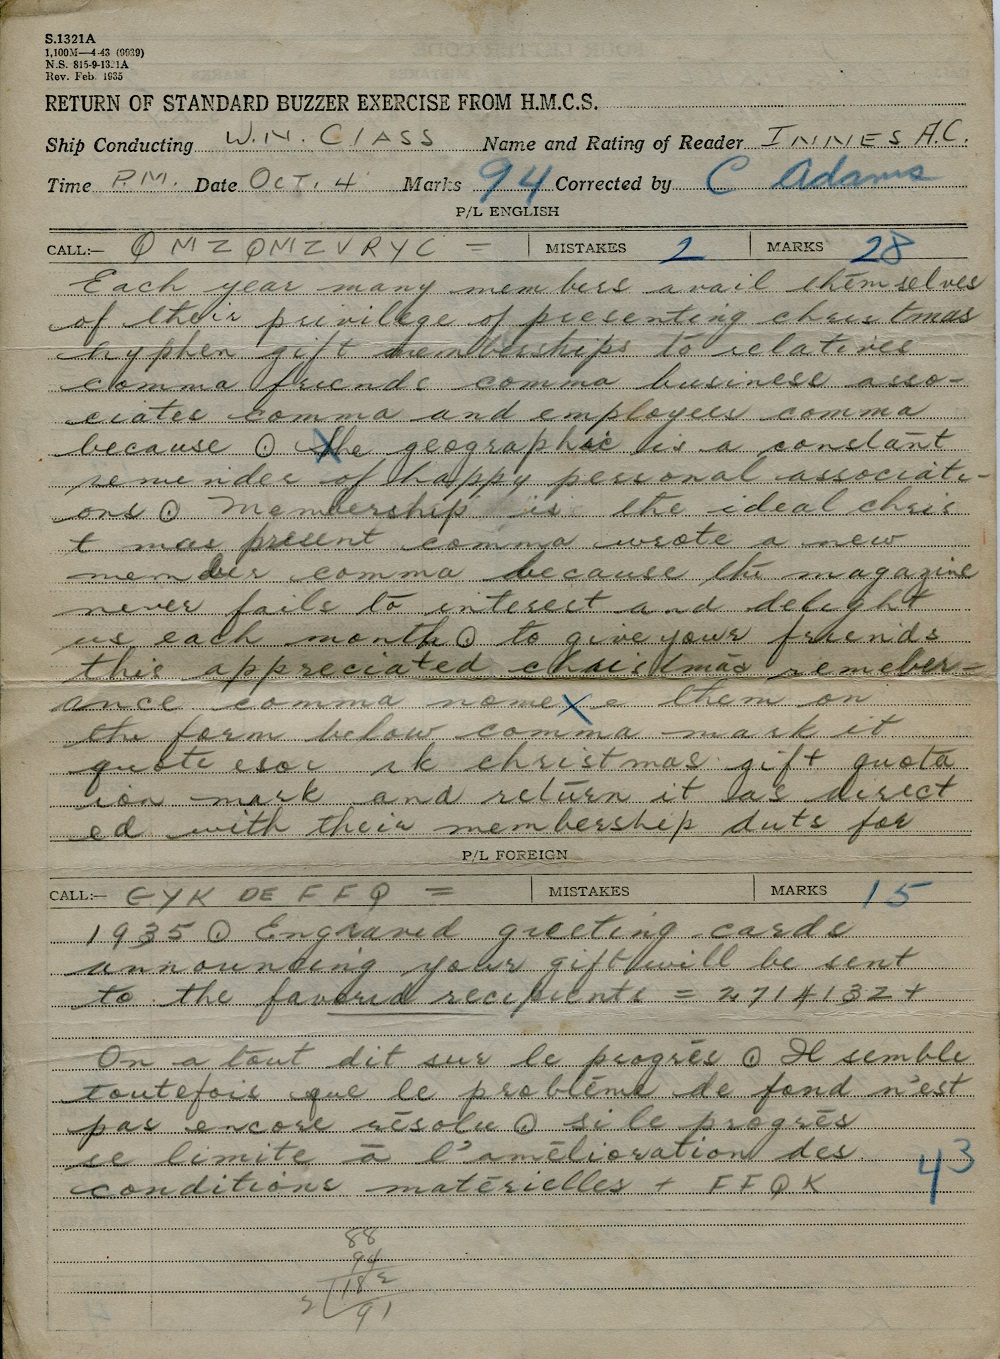 S.1321A
1,100M—4-43 (9939)
N.S. 815-9-1321A
Rev. Feb. 1935
RETURN OF STANDARD BUZZER EXERCISE FROM H.M.C.S.
Ship Conducting W.N. Class Name and Rating of Reader INNES A.C.
Time P.M. Date OCT. 4 Marks 94 Corrected by C Adams
P/L ENGLISH
CALL:— QMZ QMZ V RYC = MISTAKES 2 MARKS 28
Each year many members avail themselves
of their privilege of presenting christmas
hyphen gift memberships to relatives
comma friends comma business asso-
ciates comma and employees comma
because ⊙ the geographic is a constant
reminder of happy personal associati-
ons ⊙ Membership is the ideal chris
t mas present comma wrote a new
member comma because the magazine
never fails to interest and delight
us each month ⊙ to give your friends
this appreciated christmas remeber-
ance comma nome e them on
the form below comma mark it
quote esoc rk christmas gift quota
ion mark and return it as direct
ed with their membership duts for
P/L FOREIGN
CALL:— GYK DE FFQ = MISTAKES MARKS 15
1935 ⊙ Engraved greeting cards
announcing your gift will be sent
to the favored recipients = 2714132 +
On a tout dit sur le progrès ⊙ Il semble
toutefois que le problème de fond n'est
pas encore résolu ⊙ si le progrès
se limite à l'amélioration des
conditions matérielles + FFQ K
43
88
94
2 182
91